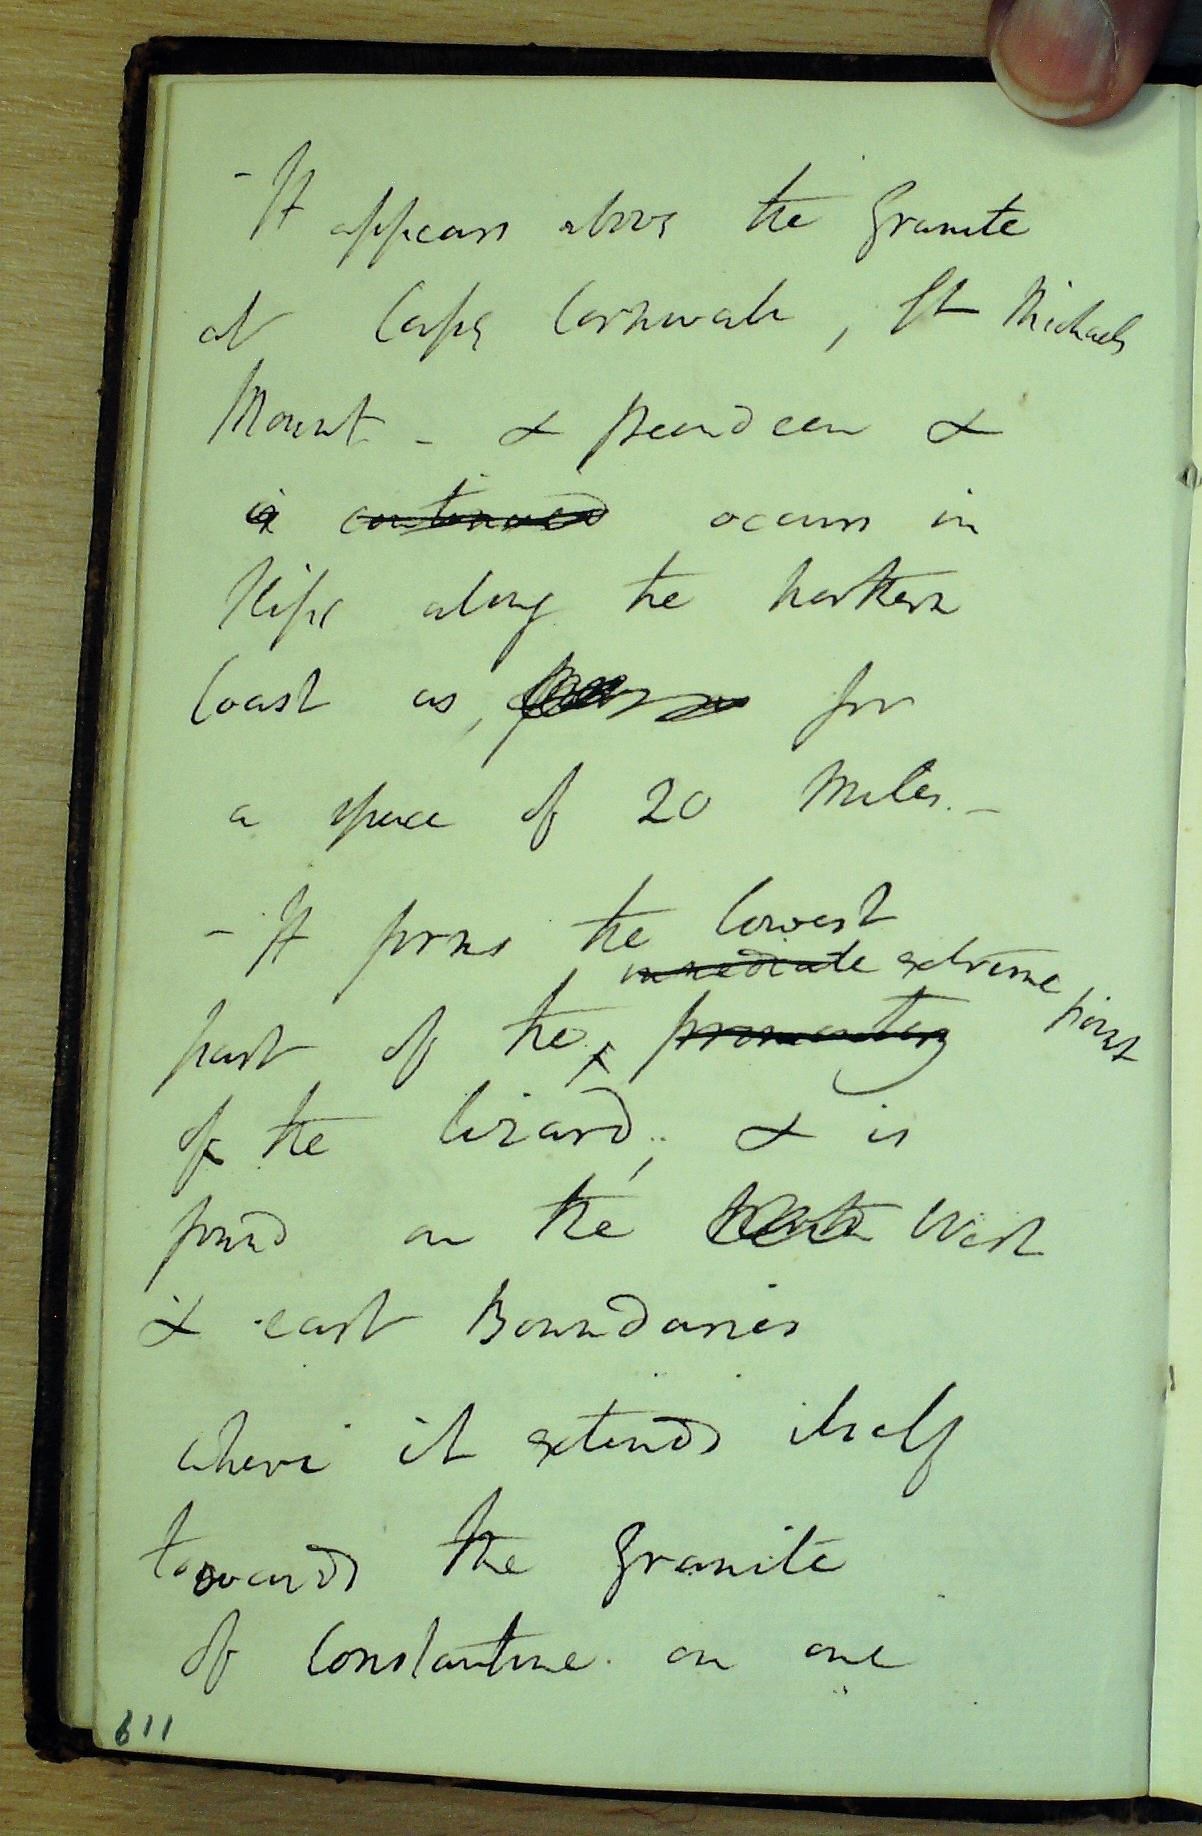 - It appears above the Granite
at Cape Cornwall, St Michaels
Mount - & &
is continued occurs in
along the Northern
Coast as, for
a space of 20 Miles. -
- It forms the lowest
immediate extreme point
part of the promontory
of the Lizard; & is
found on the West
& east Boundaries
where it extends itself
towards the Granite
of Constantine. on one
611